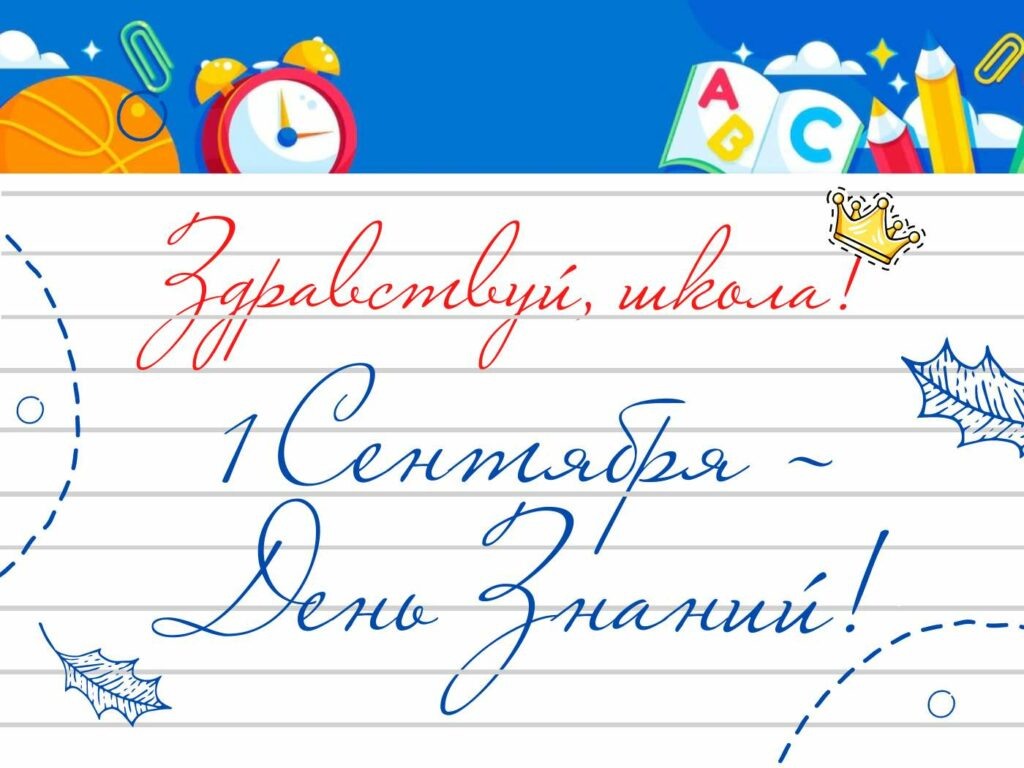 A
B
C
Здравствуй, школа!
1 Сентября ~
День Знаний!